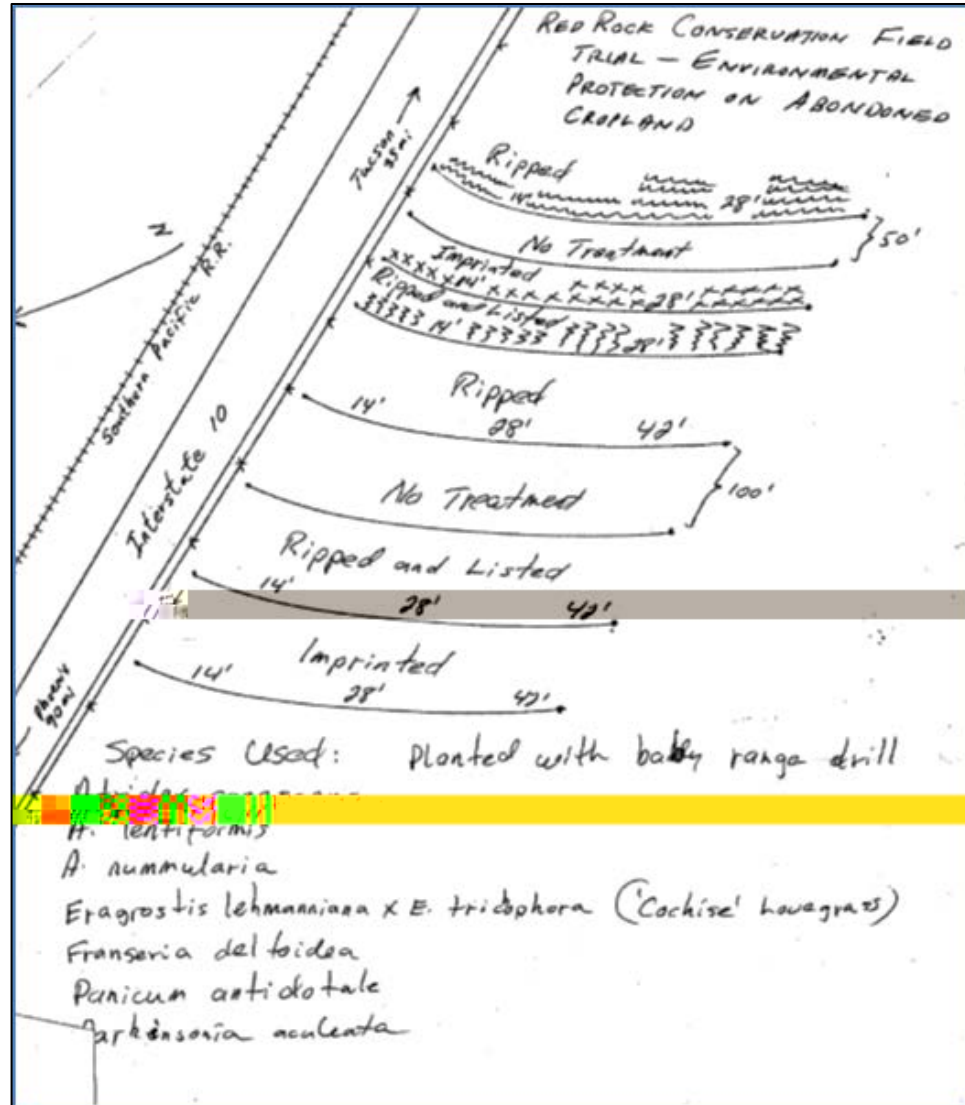 RED ROCK CONSERVATION FIELD
TRIAL – ENVIRONMENTAL
PROTECTION ON ABONDONED
CROPLAND
Tucson
35 mi
N
Southern Pacific R.R.
Interstate 10
Phoenix
90 mi
Ripped
14' 28'
50'
No Treatment
Imprinted
14' 28'
Ripped and Listed
14' 28'
Ripped
14' 28' 42'
100'
No Treatment
Ripped and Listed
14' 28' 42'
Imprinted
14' 28' 42'
Species Used: Planted with baby range drill
A. lentiformis
A. nummularia
Eragrostis lehmanniana x E. tricophora ('Cochise' Lovegrass)
Franseria deltoidea
Panicum antidotale
Parkinsonia aculeata